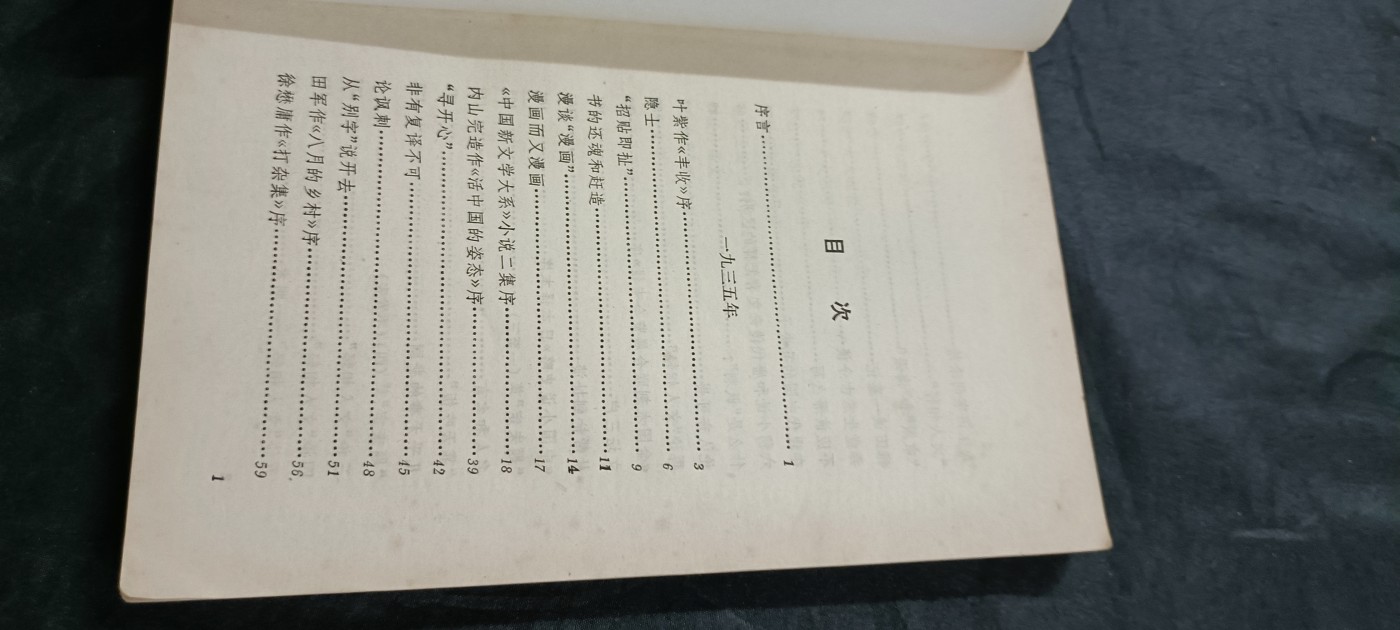 目 次
序言 1
一九三五年
叶紫作《丰收》序 3
隐士 6
“招贴即扯” 9
书的还魂和赶造 11
漫谈“漫画” 14
漫画而又漫画 17
《中国新文学大系》小说二集序 18
内山完造作《活中国的姿态》序 39
“寻开心” 42
非有复译不可 45
论讽刺 48
从“别字”说开去 51
田军作《八月的乡村》序 56
徐懋庸作《打杂集》序 59
1